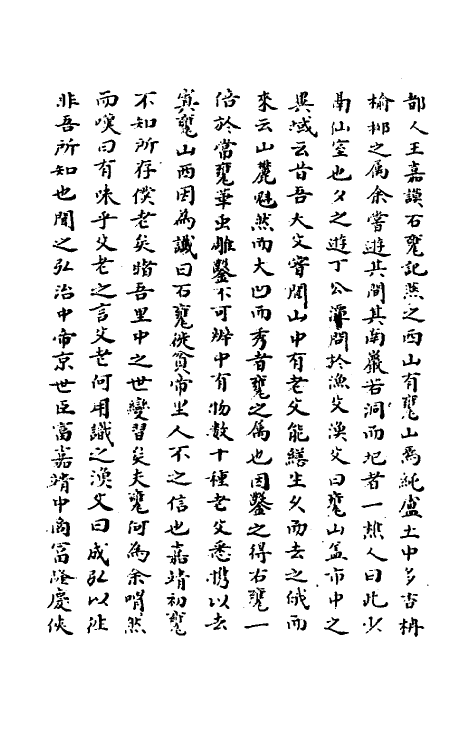 都人王嘉謨石甕記燕之西山有甕山爲純盧土中多杏柟
榆柳之属余嘗遊其間其南巖若洞而圯者一樵人曰此少
鬲仙室也夕之遊丁公潭問於漁父漁父曰甕山盖市中之
異域云昔吾大父嘗聞山中有老父能繕生久而去之俄而
來云山麓魁然而大凹而秀者甕之属也因鑿之得石甕一
倍於常甕華虫雕鑿不可辨中有物数十種老父悉携以去
寘甕山西因為讖曰石甕徙貧帝里人不之信也嘉靖初甕
不知所存僕老矣睹吾里中之世變習矣夫甕何為余喟然
而嘆曰有味乎父老之言父老何用讖之漁父曰成弘以往
非吾所知也聞之弘治中帝京世臣富嘉靖中商富隆慶俠